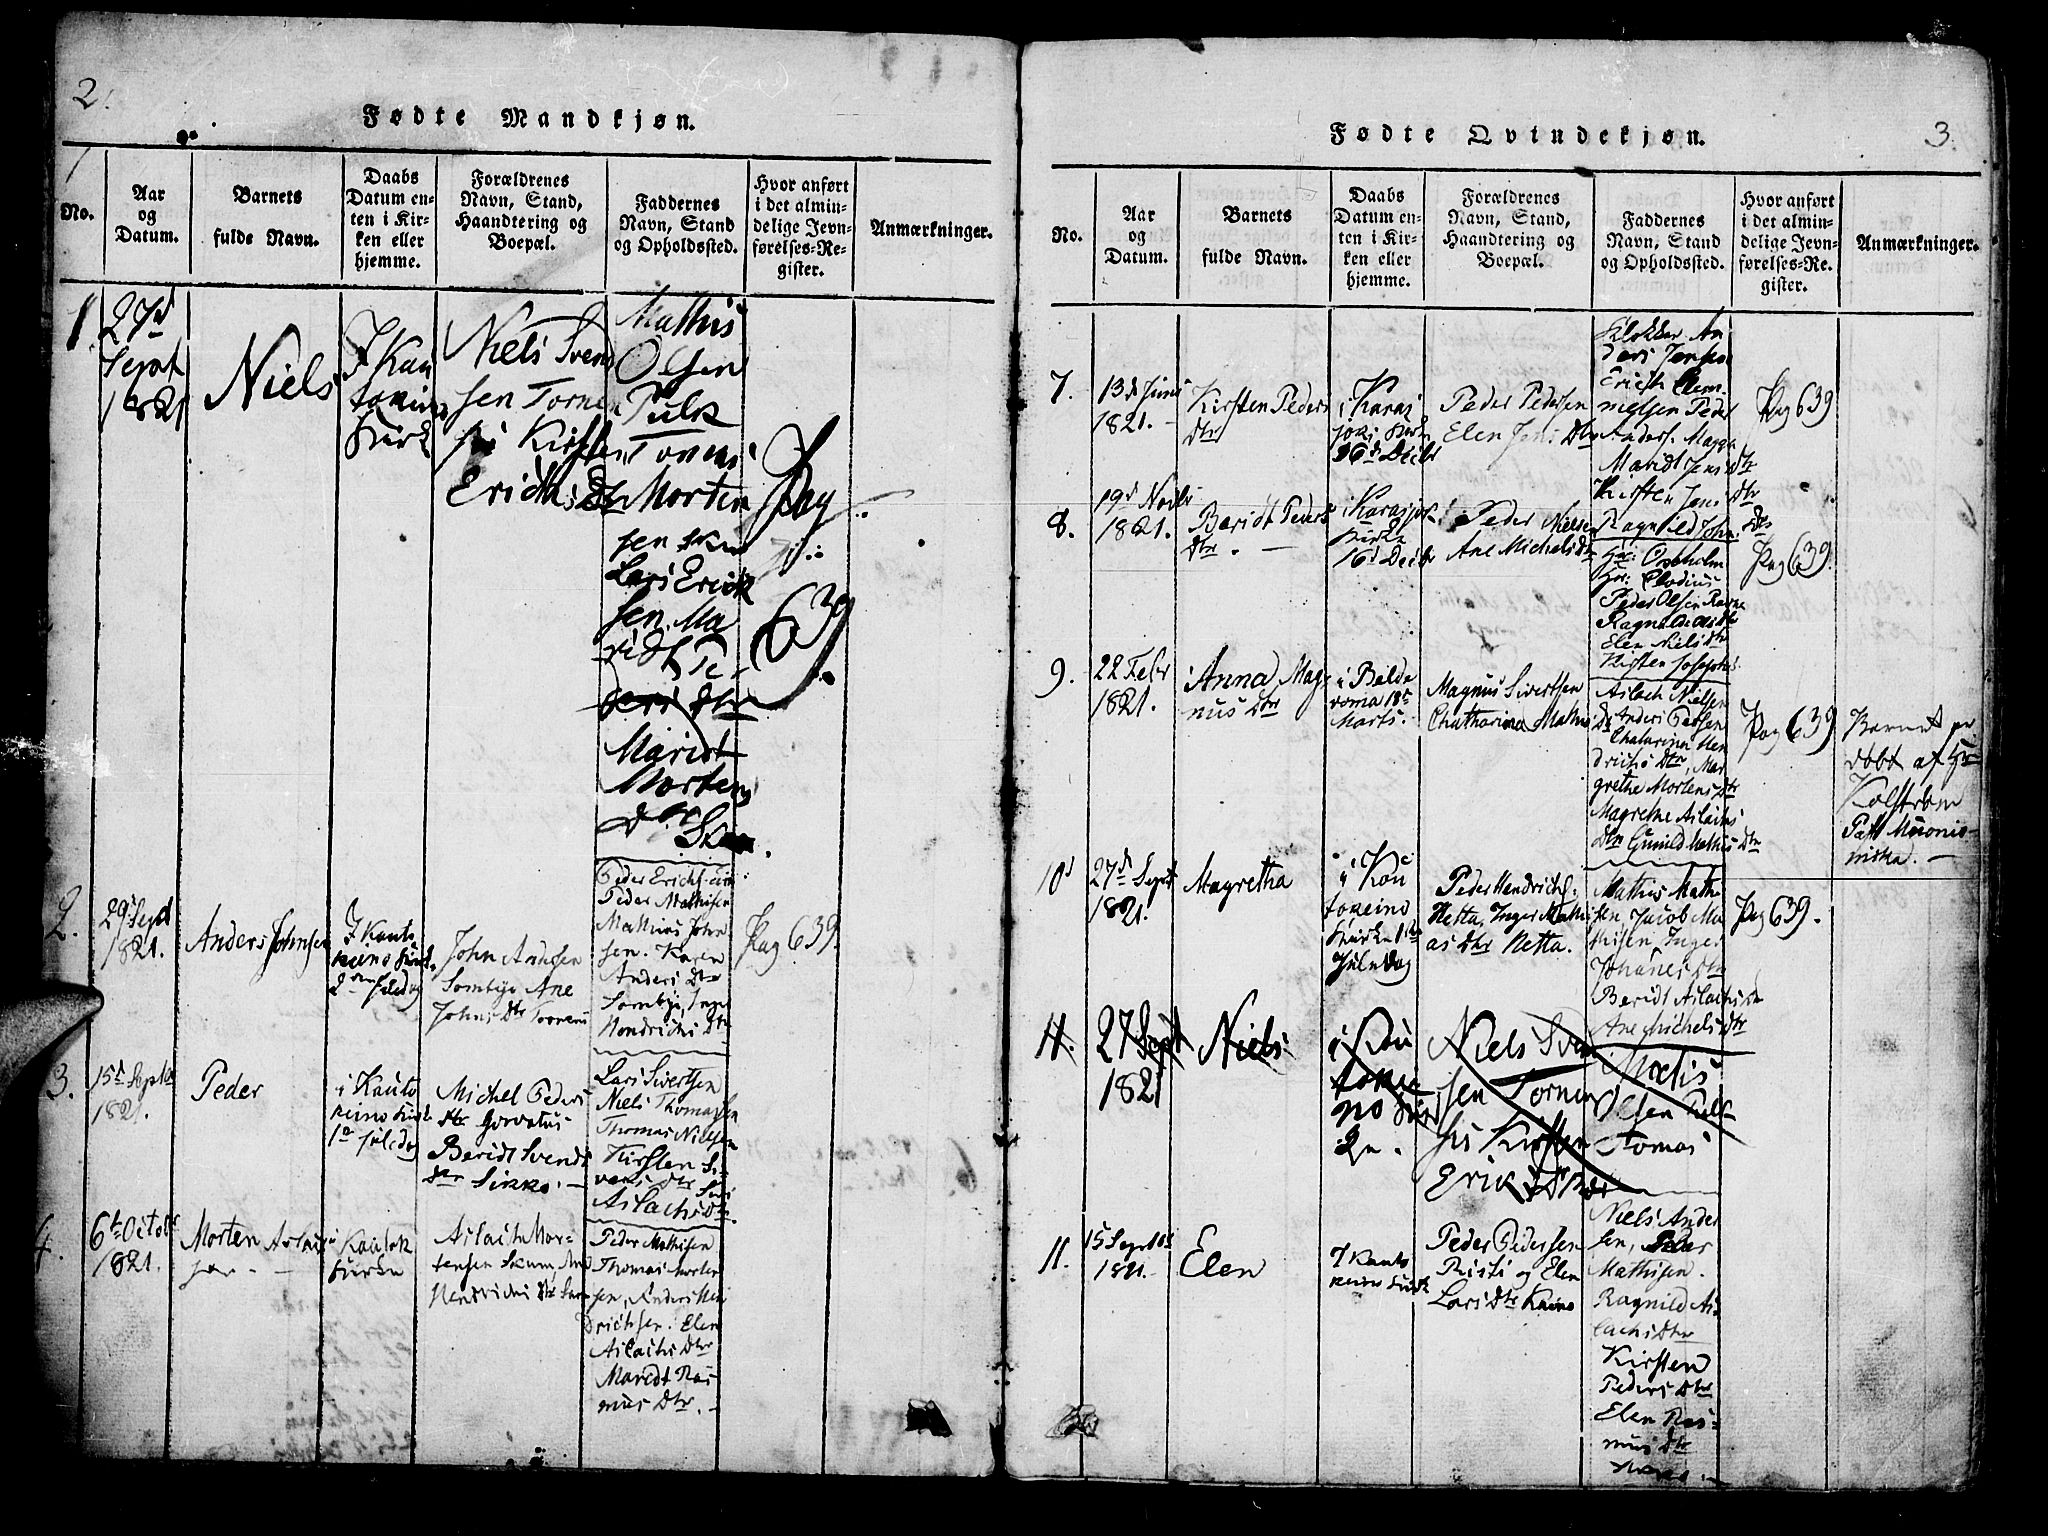 2.
Fødte Mandkjøn.
No.
Aar
og
Datum.
Barnets
fulde Navn.
Daabs
Datum en-
ten i Kir-
ken eller
hjemme.
Forældrenes
Navn, Stand,
Haandtering og
Boepæl.
Faddernes
Navn, Stand
og Opholdssted.
Hvor anført
i det almin-
delige Jevn-
førelses-Re-
gister.
Anmærkninger.
1.
27d
Sept
1821
Niels
I Kau
tokino
Kirk
Niels Svend
sen Tornen
sis Kirsten
Erichs Dtr
Mathis
Olsen
Pulk
Tomas
Morten
sen
Lars Erick
sen. Ma
ridt Pe
ders Dtr
Maridt
Mortens
dtr
Pag
639
2.
29d Sept
1821.
Anders Johnsen
I Kauto
keino Kirk
2den Juledag
John Andersen
Sombye Ane
Johns Dtr
Peder Erichs
Peder Mathisen
Mathius John
sen. Karen
Anders Dtr
Sombye, Inger
Hendrichs Dtr
Pag 639.
3.
15d Septbr
1821.
Peder
i Kauto
keino Kirk
1te Juledag
Michel Peders
Gorvatus
Beridt Svends
Dtr Sikko. —
Lars Sivertsen
Niels Thomassen
Thomas Nielsen
Kirsten Si
vers Dtr
Aslachs Dtr.
4.
6te Octobr
1821.
Morten Aslach
sen. —
i Kautok
Kirke
Aslach Mor-
tensen Skum,
Hendrichs Dtr
Peder Mathisen
Thomas Morten
sen, Anders Hen
drichsen. Elen
Aslachs Dtr
Maredt Ras
mus Dtr. —
3.
Fødte Qvindekjøn.
No.
Aar
og
Datum.
Barnets
fulde Navn.
Daabs
Datum en-
ten i Kir-
ken eller
hjemme.
Forældrenes
Navn, Stand,
Haandtering og
Boepæl.
Faddernes
Navn, Stand
og Opholdssted.
Hvor anført
i det almin-
delige Jevn-
førelses-Re-
gister.
Anmærkninger.
7.
13d Juni
1821. —
Kirsten Peders
Dtr
i Karas
joki Kirk
16d Decbr
Peder Pedersen
Elen Jens Dtr
Klokker An
ders Jensen
Erich Clem
mesen Peder
Anders. Magga
Maridt Jens Dtr
Kirsten Jens Dtr
Ragnild Johns
Pag 639
8.
19d Novbr
1821.
Beridt Peders
Dtr. —
i Karasjok
Kirke
16d Decbr
Peder Nielsen
Ane Michels Dtr
Hr: Oxholm
Hr: Clodius
Peder Olsen Ravne
Ragnild Ols Dtr
Elen Niels Dtr
Kisten Josephs
Pag 639.
9.
22 Febr
1821.
Anna Mag-
nus Dtr
i Beldo
voma 18de
Marts.
Magnus Sivertsen
Chatharina Mathis Dtr
Aslach Nielsen
Anders Persen
Chatarina Hen
drichs Dtr, Mar
grethe Mortens Dtr
Magrethe Aslachs
Dtr Gunild Mathis Dtr
Pag 639
Barnet er
døbt af Hr
Kolstrøm
Past Muonio-
niska. —
10d
27d Sept
1821.
Magretha
i Kou
tokeino
Kirke 1te
Juledag
Peder Hendrichs.
Hetta, Inger Mathi
as Dtr Hetta.
Mathis Mathi
sen, Jacob Ma
thisen, Inger
Johanes Dtr
Beridt Aslachs Dtr
Ane Michels Dtr
Pag 639.
11.
27 Sept
1821
Niels
i Kou
tokei
no Kirk
Niels Svend
sen Tornen
sis Kirsten
Eriks Dtr
Mathis
Olsen Pulk
Tomas
11.
15 Septbr
1821.
Elen
I Kauto
keino Kirk
Peder Pedersen
Risti og Elen
Lars Dtr Kaino
Niels Ander
sen, Peder
Mathisen.
Ragnild As
lachs Dtr
Kirsten
Peders Dtr
Elen Ras-
mus Dtr